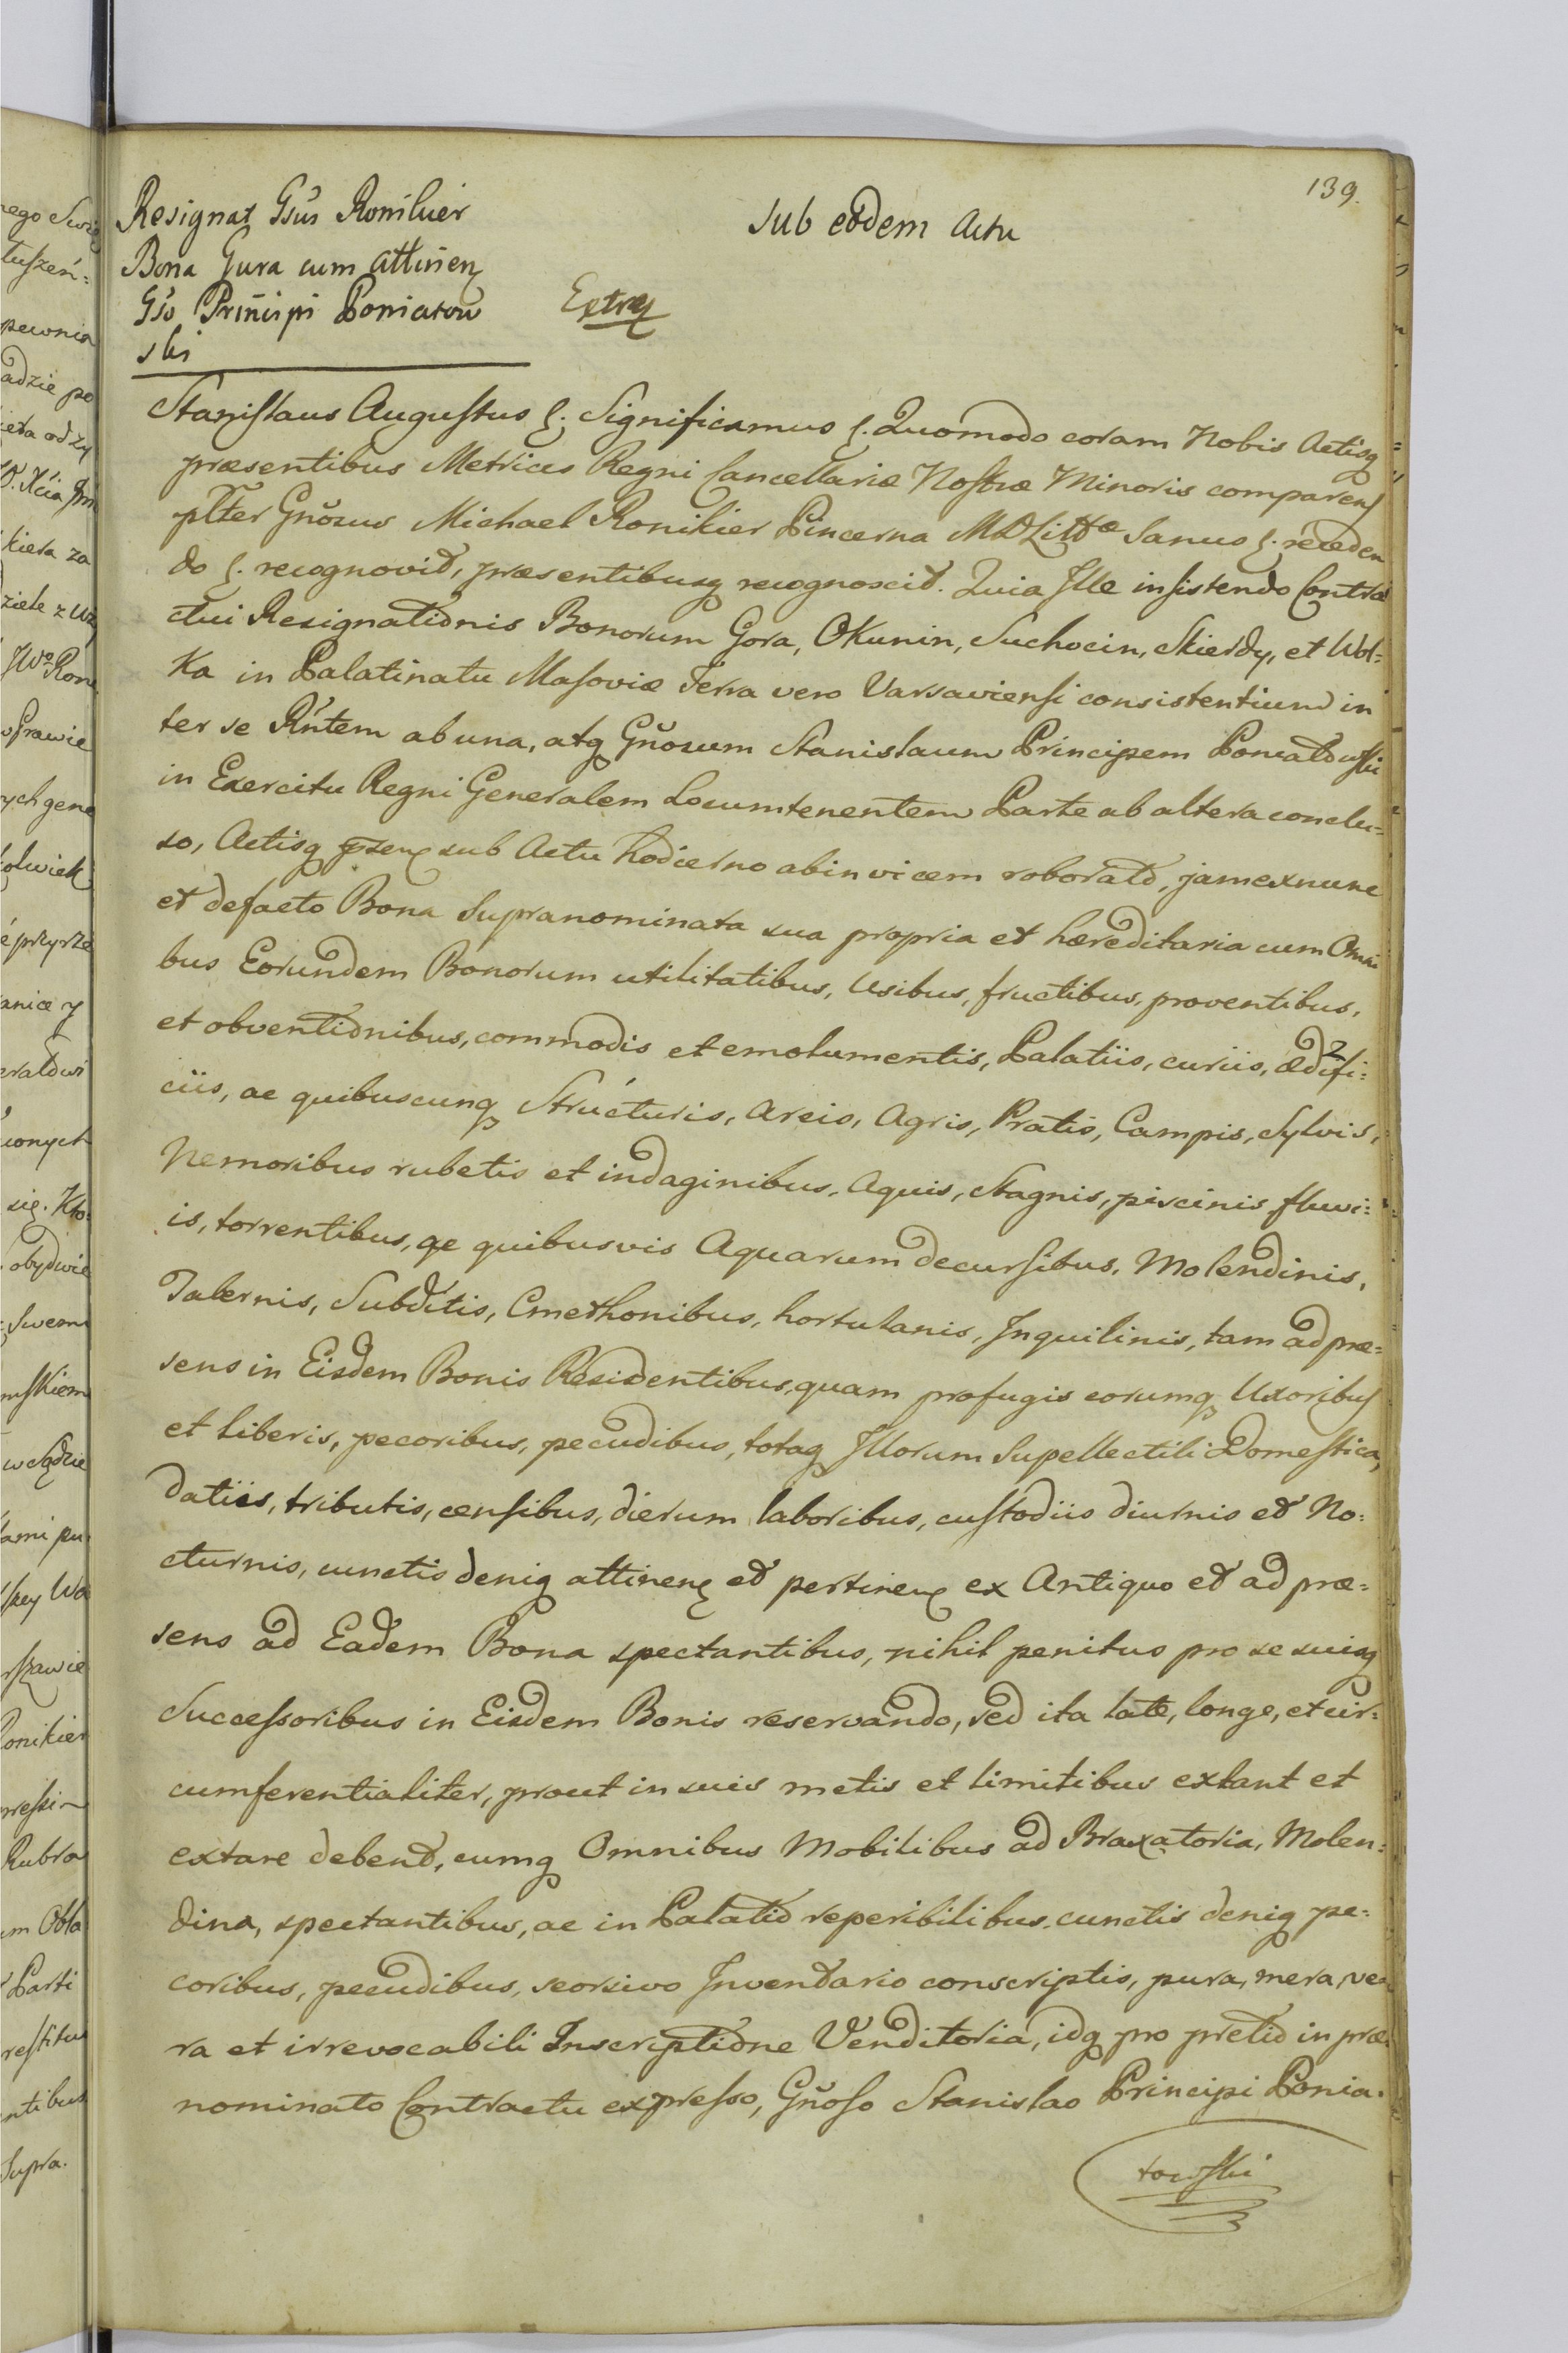 139.
Resignat Gsus Ronikier
Bona Gura cum attinen
Gso Principi Poniatow
ski
Sub eodem Actu
Extr
Stanislaus Augustus &. Significamus &. Quomodo coram Nobis Actisq
præsentibus Metrices Regni Cancellariæ Nostræ Minoris comparens
plter Gnosus Michael Ronikier Pincerna MDLittæ Sanus &. receden
do &. recognovit, præsentibusq recognoscit. Quia Ille insistendo Contra
ctui Resignationis Bonorum Gora, Okunin, Suchocin, Skierdy, et Wol=
ka in Palatinatu Masoviæ Terra vero Varsaviensi consistentium in
ter se Rntem ab una, atq Gnosum Stanislaum Principem Poniatowski
in Exercitu Regni Generalem Locumtenentem Parte ab altera conclu=
so, Actisq pzen sub Actu hodierno abinvicem roborato, jam exnunc
et defacto Bona Supranominata sua propria et hæreditaria cum Omni
bus Eorundem Bonorum utilitatibus, Usibus, fructibus, proventibus,
et obventionibus, commodis et emolumentis, Palatiis, curiis, ædifi=
ciis, ac quibuscunq Structuris, Areis, Agris, Pratis, Campis, Sylvis,
Nemoribus rubetis et indaginibus, Aquis, Stagnis, piscinis fluvi=
is, torrentibus, ac quibusvis Aquarum decursibus, Molendinis,
Tabernis, Subditis, Cmethonibus, hortulanis, Inquilinis, tam ad præ=
sens in Eisdem Bonis Residentibus, quam profugis eorumq Uxoribus
et liberis, pecoribus, pecudibus, totaq Illorum Supellectili Domestica,
datiis, tributis, censibus, dierum laboribus, custodiis diurnis et No=
cturnis, cunctis deniq attinen et pertinen ex Antiquo et ad præ=
sens ad Eadem Bona spectantibus, nihil penitus pro se suisq
Successoribus in Eisdem Bonis reservando, sed ita late, longe, et cir=
cumferentialiter, prout in suis metis et limitibus extant et
extare debent, cumq Omnibus Mobilibus ad Braxatoria, Molen=
dina, spectantibus, ac in Palatio reperibilibus, cunctis deniq pe=
coribus, pecudibus, seorsivo Inventario conscriptis, pura, mera, ve
ra et irrevocabili Inscriptione Venditoria, idq pro pretio in præ
nominato Contractu expresso, Gnoso Stanislao Principi Ponia=
towski